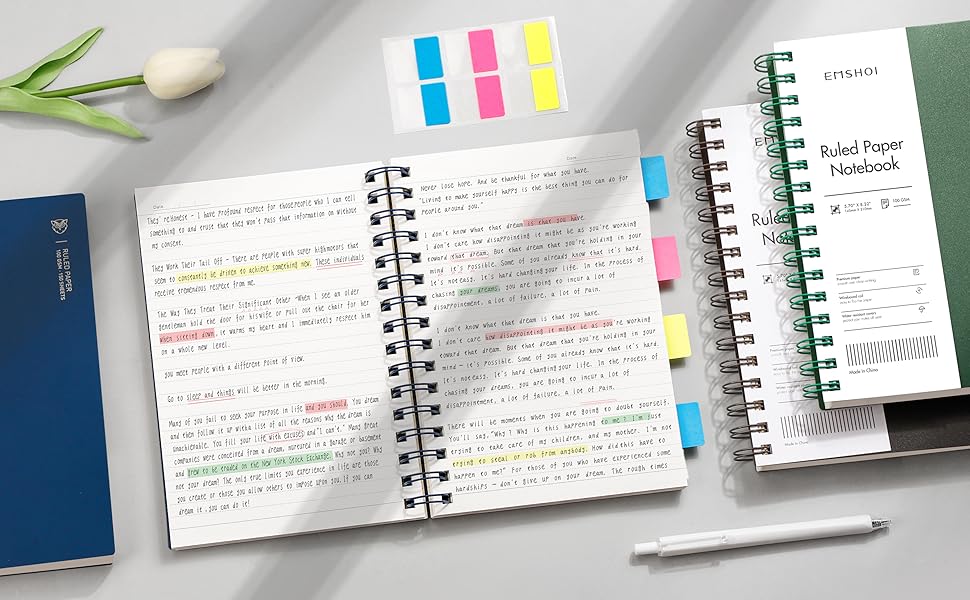 RULED PAPER
100 GSM / 150 SHEETS
Date
They're Honest - I have profound respect for those people who I can tell
something to and trust that they won't pass that information on without
my consent.
They Work Their Tail Off - There are people with super high motors that
seem to constantly be driven to achieve something new. These individuals
receive tremendous respect from me.
The Way They Treat Their Significant Other - When I see an older
gentleman hold the door for his wife or pull out the chair for her
when sitting down, it warms my heart and I immediately respect him
on a whole new level.
you meet people with a different point of view.
Go to sleep and things will be better in the morning.
Many of you fail to seek your purpose in life and you should. You dream
and then follow it up with a list of all the reasons why the dream is
unachievable. You fill your life with excuses and "I can't." Many great
companies were conceived from a dream, nurtured in a garage or basement
and grew to be traded on the New York Stock Exchange. Why not you? Why
not your dream? The only true limits you experience in life are those
you create or those you allow others to impose upon you. If you can
dream it, you can do it!
Date
Never lose hope. And be thankful for what you have.
"Living to make yourself happy is the best thing you can do for
people around you."
I don't know what that dream is that you have.
I don't care how disappointing it might be as you're working
toward that dream. But that dream that you're holding in your
mind it's possible. Some of you already know that it's hard.
It's not easy. It's hard changing your life. In the process of
chasing your dreams, you are going to incur a lot of
disappointment, a lot of failure, a lot of pain.
I don't know what that dream is that you have.
I don't care how disappointing it might be as you're working
toward that dream. But that dream that you're holding in your
mind - it's possible. Some of you already know that it's hard.
It's not easy. It's hard changing your life. In the process of
chasing your dreams, you are going to incur a lot of
disappointment, a lot of failure, a lot of pain.
There will be moments when you are going to doubt yourself.
You'll say, "Why? Why is this happening to me? I'm just
trying to take care of my children, and my mother. I'm not
trying to steal or rob from anybody. How did this have to
happen to me?" For those of you who have experienced some
hardships — don't give up on your dream. The rough times
EM
Rule
No
EMSHOI
Ruled Paper
Notebook
5.70" X 8.20"
100 GSM
Premium paper
Wirebound coil
Water-resistant covers
Made in China